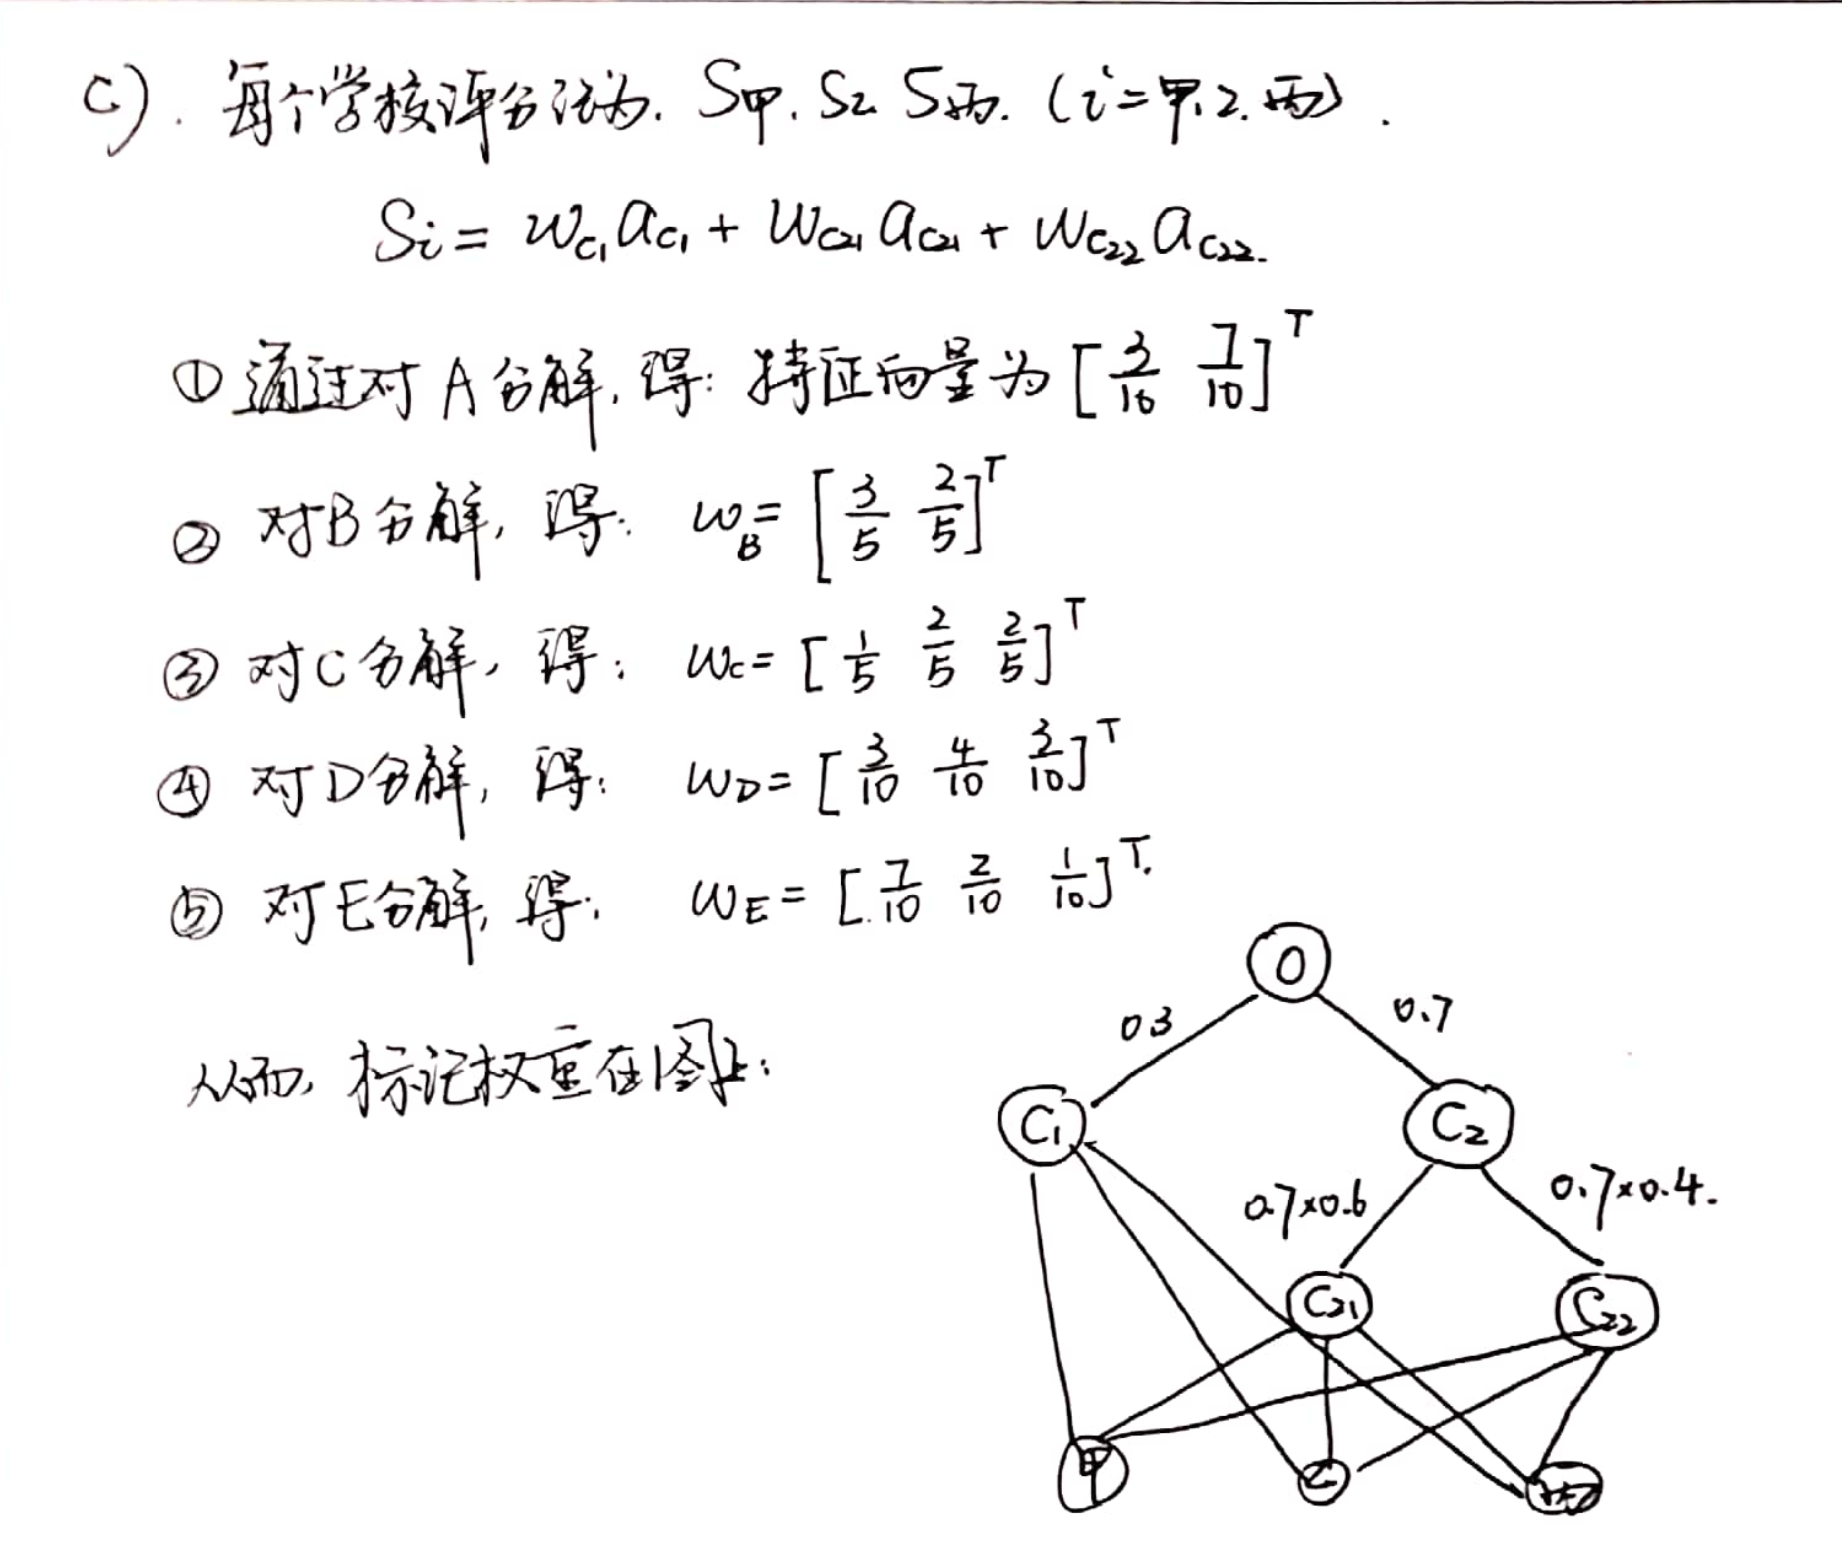 c). 每个学校评分记为. S甲. S乙 S丙. (i=甲.乙.丙).
Si = w_{c₁} a_{c₁} + w_{c₂₁} a_{c₂₁} + w_{c₂₂} a_{c₂₂}.
① 通过对A分解, 得: 特征向量为 [3/10 7/10]^T
② 对B分解, 得: w_B = [3/5 2/5]^T
③ 对C分解, 得: w_C = [1/5 2/5 2/5]^T
④ 对D分解, 得: w_D = [3/10 4/10 3/10]^T
⑤ 对E分解, 得: w_E = [7/10 2/10 1/10]^T.
从而, 标记权重在图上:
O
0.3 0.7
C₁ C₂
0.7×0.6 0.7×0.4.
C₂₁ C₂₂
甲 乙 丙